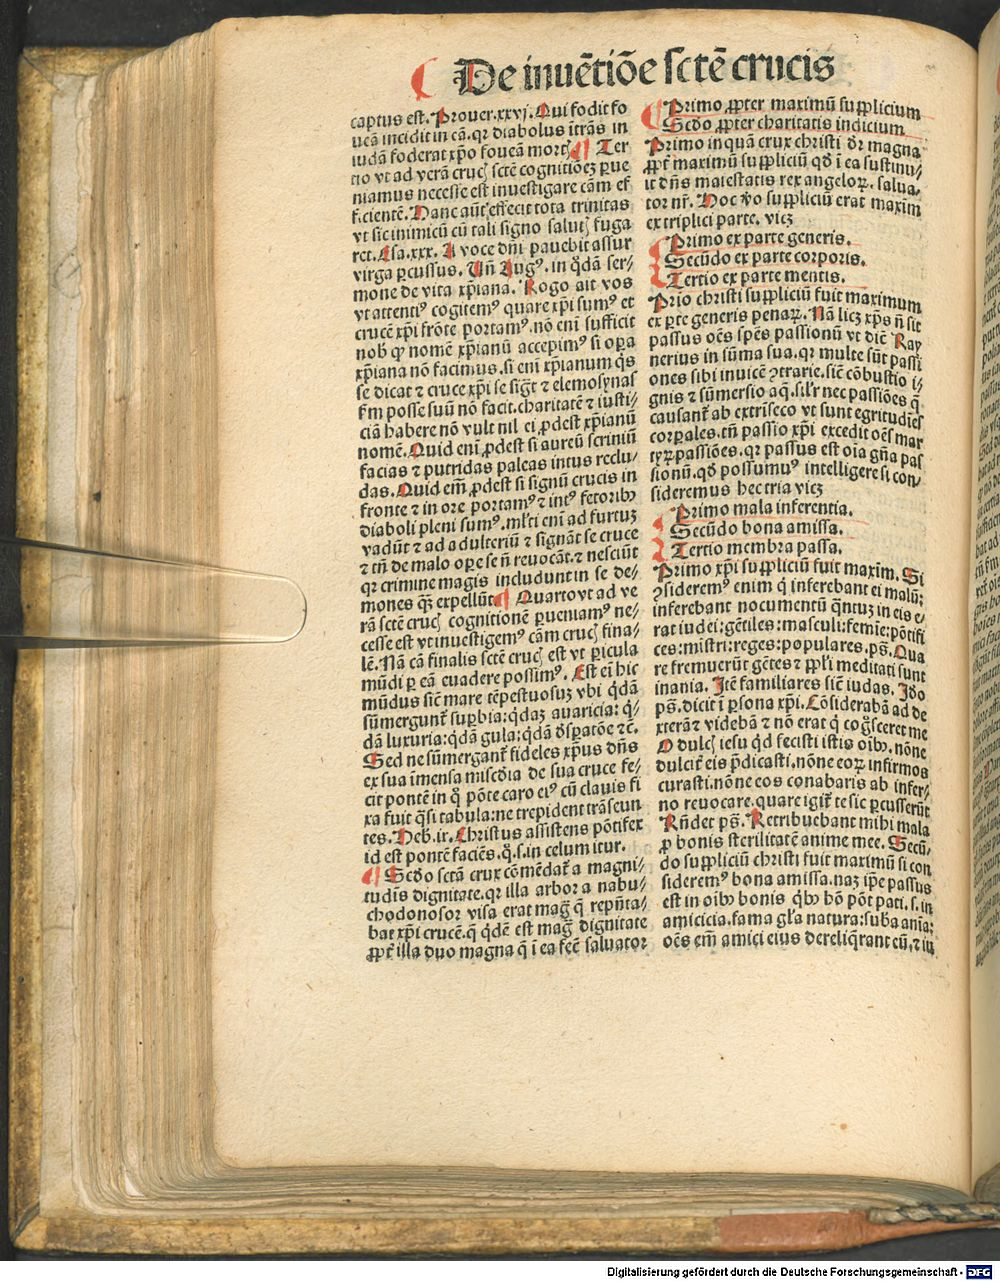 De inuētiōe sctē crucis
captus est. Prouer.xxvj. Qui fodit fo
ueā incidit in eā. qr diabolus ītrās in
iudā foderat xp̄o foueā mortꝭ ¶ Ter
tio vt ad verā crucꝭ sctē cognitiōeꝫ ꝑue
niamus necesse est inuestigare cām ef
ficientē. Hanc aūt effecit tota trinitas
vt sic inimicū cū tali signo salutꝭ fuga
ret. Esa.xxx. A voce dn̄i pauebit assur
virga ꝑcussus. Uñ Augꝰ. in q̄dā ser-
mone de vita xp̄iana. Rogo ait vos
vt attentiꝰ cogitemꝰ quare xp̄i sumꝰ et
crucē xp̄i frōte portamꝰ. nō eni sufficit
nob̄ qꝫ nomē xp̄ianū accepimꝰ si oꝑa
xp̄iana nō facimus. si eni xp̄ianum q̄s
se dicat ⁊ cruce xp̄i se sigr̄t ⁊ elemosynas
fm posse suū nō facit. charitatē ⁊ iusti/
ciā habere nō vult nil ei ꝓdest xp̄ianū
nomē. Quid eni ꝓdest si aureū scriniū
facias ⁊ putridas paleas intus reclu/
das. Quid em̄ ꝓdest si signū crucis in
fronte ⁊ in ore portamꝰ ⁊ intꝰ fetoribꝫ
diaboli pleni sumꝰ. ml̄ti eni ad furtuꝫ
vadūt ⁊ ad adulteriū ⁊ signāt se cruce
⁊ tn̄ de malo oꝑe se n̄ reuocāt. ⁊ nesciūt
qr crimine magis includunt in se de-
mones q̄ꝫ expellūt ¶ Quarto vt ad ve
rā sctē crucꝭ cognitionē ꝑueniamꝰ ne/
cesse est vt inuestigemꝰ cām crucꝭ fina/
lē. Nā cā finalis sctē crucꝭ est vt ꝑicula
mūdi ꝑ eā euadere possimꝰ. Est eni hic
mūdus sicē mare tēpestuosuꝫ vbi q̄dā
sūmergunt̄ suꝑbia: q̄daꝫ auaricia: q̄/
dā luxuria: q̄dā gula: q̄dā dꝭꝑatōe ⁊c.
Sed ne sūmergant̄ fideles xp̄us dn̄s
ex sua īmensa misc̄dia de sua cruce fe/
cit pontē in q̊ pōte caro eiꝰ cū clauis fi
xa fuit q̄si tabula: ne trepident trāseun
tes. Heb.ix. Christus assistens pōtifex
id est pontē faciēs. q̄.s. in celum itur.
¶ Scd̄o sctā crux cōmēdat̄ a magni/
tudīs dignitate. qr illa arbor a nabu/
chodonosor visa erat maḡ q̄ rep̄nta/
bat xp̄i crucē. q̄ q̄dē est maḡ dignitate
ꝓpt̄ illa duo magna q̄ ī ea fec̄ saluator
¶ Primo ꝓpter maximū suppliciuꝫ
Scd̄o ꝓpter charitatis indicium
Primo inquā crux christi dr̄ magna
ꝓpt̄ maximū suppliciū qd̄ ī ea sustinu/
it dn̄s maiestatis rex angeloꝝ. salua/
tor nr̄. Hoc v̊o suppliciū erat maxim
ex triplici parte. vicꝫ
Primo ex parte generis.
Secūdo ex parte corporis.
Tertio ex parte mentis.
Prīo christi suppliciū fuit maximum
ex ꝑte generis penaꝝ. Nā licꝫ xp̄s n̄ sit
passus oēs spēs passionū vt diē Ray
nerius in sūma sua. qr multe sūt passi
ones sibi inuicē ꝯtrarie. sicē cōbustio i/
gnis ⁊ sūmersio aq̄. sil̄r nec passiōes q̄
causant̄ ab extrīseco vt sunt egritudīes
corꝑales. tn̄ passio xp̄i excedit oēs mar
tyꝝ passiōes. qr passus est oīa gn̄a pas
sionū. qd̄ possumꝰ intelligere si con/
sideremus hec tria vicꝫ
Primo mala inferentia.
Secūdo bona amissa.
Tertio membra passa.
Primo xp̄i suppliciū fuit maxim. Si
ꝯsideremꝰ enim q̄ inferebant ei maluꝫ;
inferebant nocumentū q̄ntuꝫ in eis e/
rat iudei: gētiles: masculi: femīe: pōtifi
ces: mīstri: reges: populares. ps̄. Qua
re fremuerūt gētes ⁊ ppl̄i meditati sunt
inania. Itē familiares sicē iudas. Iō
ps̄. dicit ī ꝑsona xp̄i. Cōsiderabā ad de
xterā ⁊ videbā ⁊ nō erat q̄ cog̊sceret me
O dulcꝭ iesu qd̄ fecisti istis oībꝫ. nōne
dulcit̄ eis p̄dicasti. nōne eoꝝ infirmos
curasti. nōne eos conabaris ab infer/
no reuocare. quare igit̄ te sic ꝑcusserūt
Rn̄det ps̄. Retribuebant mihi mala
ꝓ bonis sterilitatē anime mee. Secū/
do suppliciū christi fuit maximū si con/
sideremꝰ bona amissa. naꝫ ip̄e passus
est in oībꝫ bonis q̄bꝫ hō pōt pati. s. in
amicicia. fama gl̄a natura: suba anīa:
oēs em̄ amici eius dereliq̄rant eū, ⁊ iu
Digitalisierung gefördert durch die Deutsche Forschungsgemeinschaft - DFG